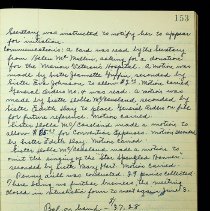 153
Secretary was instructed to notify her to appear
for initiation.
Communications: A card was read by the Secretary
from Helen Mc Millin, asking for a donation
for the Marion Veterans Hospital. A motion was
made by sister Jeannette, seconded by
sister Eva Johnson, to allow. Motion carried
General Orders no. 9 was read. A motion was
made by sister Nella McCausland, seconded by
sister Edith Day to place General Orders on file
for future reference. Motion carried.
Sister Nella McCausland made a motion to
allow for Convention expenses. Motion seconded
by sister Edith Day. Motion carried
Sister Nella McCausland made a motion to
omit the singing of the Star Spangled Banner
seconded by sister Mary Hart. Motion carried.
Penny drill was conducted. 39 pennies collected
There being no further business, the meeting
closed in ritualistic form to meet again June 3.
Bal. on hand 37.28